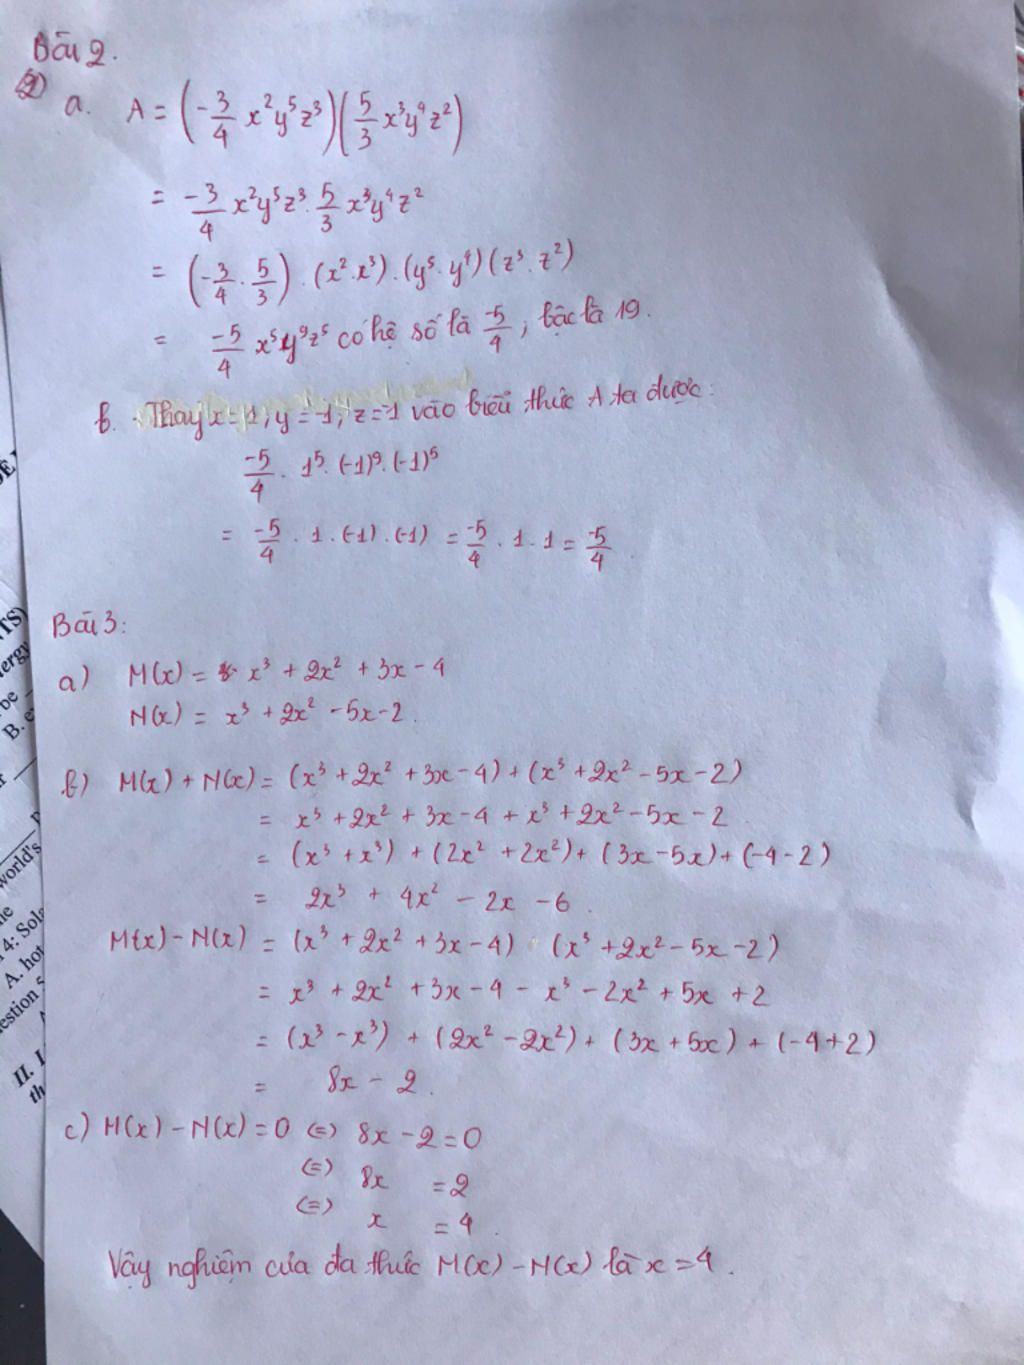 Bài 2.
a. A = (-3/4 x²y⁵z³)(5/3 x³y⁴z²)
= -3/4 x²y⁵z³. 5/3 x³y⁴z²
= (-3/4 . 5/3) . (x².x³) . (y⁵. y⁴)(z³. z²)
= -5/4 x⁵y⁹z⁵ có hệ số là -5/4, bậc là 19.
b. Thay x=1, y=-1, z=-1 vào biểu thức A ta được:
-5/4 . 1⁵. (-1)⁹. (-1)⁵
= -5/4 . 1 . (-1) . (-1) = -5/4 . 1 . 1 = -5/4
Bài 3:
a) M(x) = x³ + 2x² + 3x - 4
N(x) = x³ + 2x² - 5x - 2.
b) M(x) + N(x) = (x³ + 2x² + 3x - 4) + (x³ + 2x² - 5x - 2)
= x³ + 2x² + 3x - 4 + x³ + 2x² - 5x - 2
= (x³ + x³) + (2x² + 2x²) + (3x - 5x) + (-4 - 2)
= 2x³ + 4x² - 2x - 6.
M(x) - N(x) = (x³ + 2x² + 3x - 4) (x³ + 2x² - 5x - 2)
= x³ + 2x² + 3x - 4 - x³ - 2x² + 5x + 2
= (x³ - x³) + (2x² - 2x²) + (3x + 5x) + (-4 + 2)
= 8x - 2.
c) M(x) - N(x) = 0 (=) 8x - 2 = 0
(=) 8x = 2
(=) x = 4.
Vậy nghiệm của đa thức M(x) - N(x) là x = 4.
TS)
ergy
be
B.
world's
4: Sol
A. hot
estion 5
II. I
th